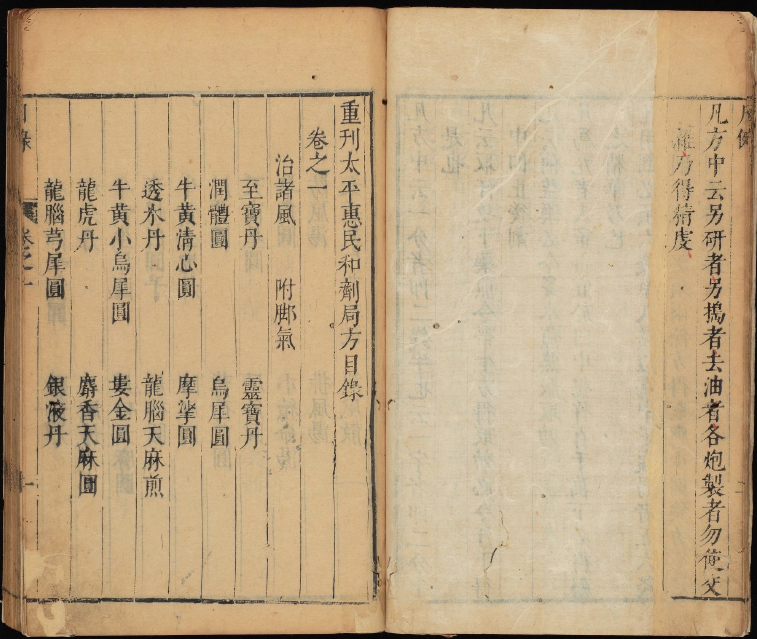 凡方中云另研者另搗者去油者各炮製者勿使父
方得精虔
重刊太平惠民和劑局方目錄
卷之一
治諸風 附脚氣
至寶丹 靈寶丹
潤體圓 烏犀圓
牛黃清心圓 摩挲圓
透氷丹 龍腦天麻煎
牛黃小烏犀圓 婁金圓
龍虎丹 麝香天麻圓
龍腦芎犀圓 銀液丹
目錄 卷之一 一